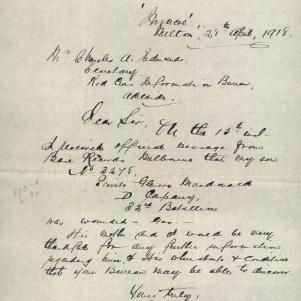 Milton, 28th April, 1918.
Mr Charles A. Edmunds
Secretary
Red Cross Information Bureau,
Adelaide.
Dear Sir, On the 15th inst
I received official message from
Base Records Melbourne that my son
No 3278,
Private Macdonald
D Company,
32nd Battalion
was wounded
His mother and I would be very
thankful for any further information
regarding him & his whereabouts & condition
that your Bureau may be able to discover.
Yours truly,